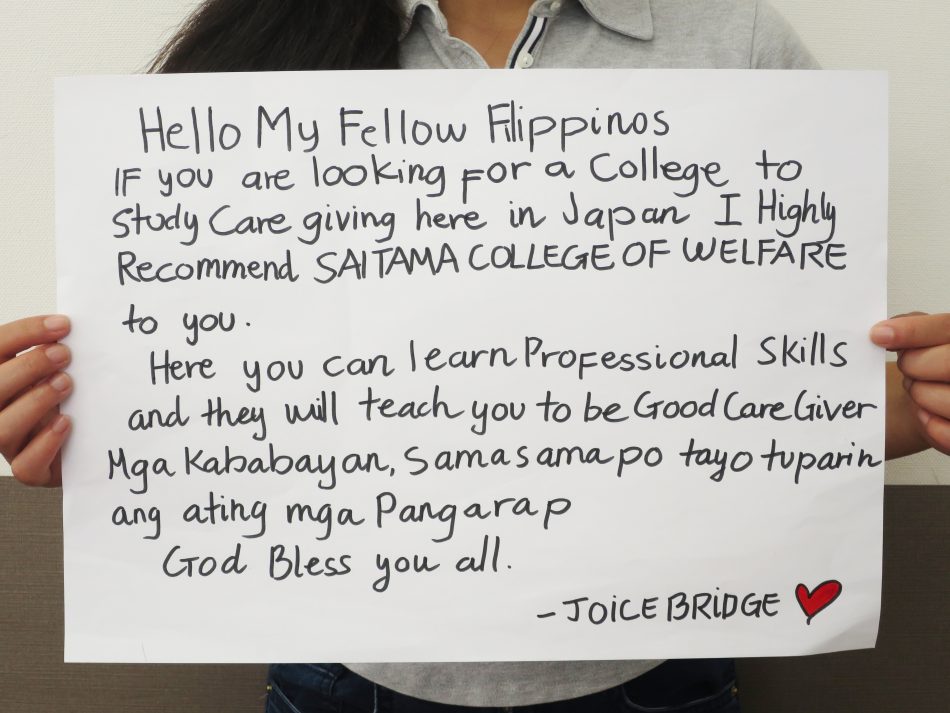 Hello My Fellow Filippinos
IF you are looking for a College to
Study Care giving here in Japan I Highly
Recommend SAITAMA COLLEGE OF WELFARE
to you.
Here you can learn Professional Skills
and they will teach you to be Good Care Giver
Mga Kababayan, Samasama po tayo tuparin
ang ating mga Pangarap
God Bless you all.
- JOICE BRIDGE